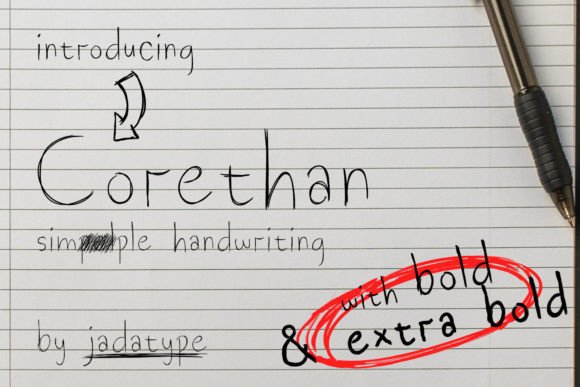 introducing
Corethan
simple handwriting
by jadatype
with bold
& extra bold